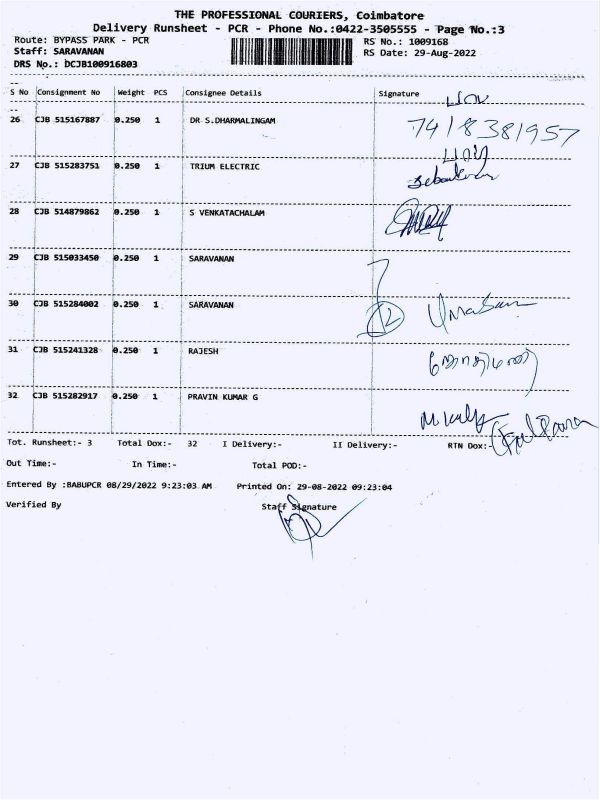 THE PROFESSIONAL COURIERS, Coimbatore
Delivery Runsheet - PCR - Phone No.:0422-3505555 - Page No.:3
Route: BYPASS PARK - PCR RS No.: 1009168
Staff: SARAVANAN RS Date: 29-Aug-2022
DRS No.: DCJB100916803
S No Consignment No Weight PCS Consignee Details Signature
26 CJB 515167887 0.250 1 DR S.DHARMALINGAM 7418381957
27 CJB 515283751 0.250 1 TRIUM ELECTRIC
28 CJB 514879862 0.250 1 S VENKATACHALAM
29 CJB 515033450 0.250 1 SARAVANAN
30 CJB 515284002 0.250 1 SARAVANAN 12
31 CJB 515241328 0.250 1 RAJESH
32 CJB 515282917 0.250 1 PRAVIN KUMAR G
Tot. Runsheet:- 3 Total Dox:- 32 I Delivery:- II Delivery:- RTN Dox:-
Out Time:- In Time:- Total POD:-
Entered By :BABUPCR 08/29/2022 9:23:03 AM Printed On: 29-08-2022 09:23:04
Verified By Staff Signature